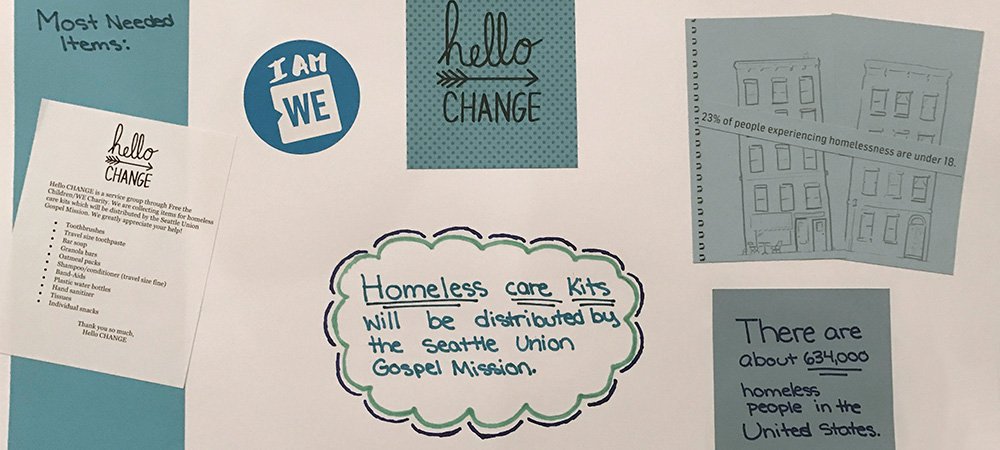 Most Needed
Items:
hello
CHANGE
Hello CHANGE is a service group through Free the
Children/WE Charity. We are collecting items for homeless
care kits which will be distributed by the Seattle Union
Gospel Mission. We greatly appreciate your help!
• Toothbrushes
• Travel size toothpaste
• Bar soap
• Granola bars
• Oatmeal packs
• Shampoo/conditioner (travel size fine)
• Band-Aids
• Plastic water bottles
• Hand sanitizer
• Tissues
• Individual snacks
Thank you so much,
Hello CHANGE
I AM
WE
hello
CHANGE
Homeless care kits
will be distributed by
the Seattle Union
Gospel Mission.
23% of people experiencing homelessness are under 18.
There are
about 634,000
homeless
people in the
United States.